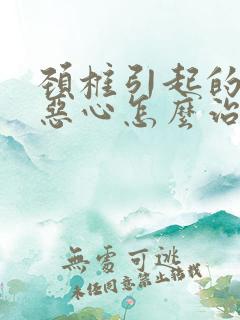 頚椎引起的
惡心怎麼治
無處可逃
未经同意禁止转载